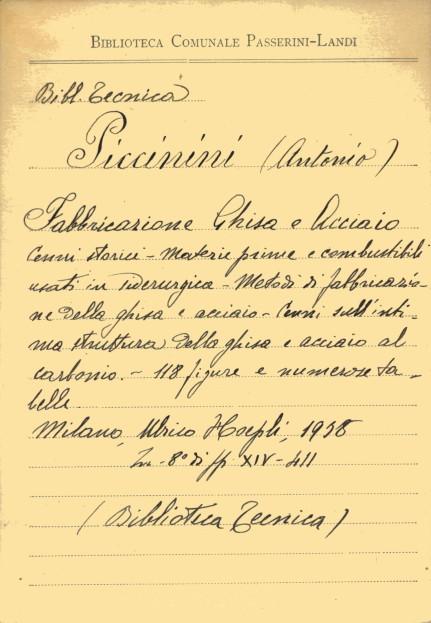 BIBLIOTECA COMUNALE PASSERINI-LANDI
Bibl. Tecnica
Piccinini (Antonio)
Fabbricazione Ghisa e Acciaio
Cenni storici - Materie prime e combustibili
usati in siderurgica - Metodi di fabbricazio-
ne della ghisa e acciaio - Cenni sull'inti-
ma struttura della ghisa e acciaio al
carbonio. - 118 figure e numerose ta-
belle
Milano, Ulrico Hoepli, 1938
In-8° di pp XIV-411
(Biblioteca Tecnica)